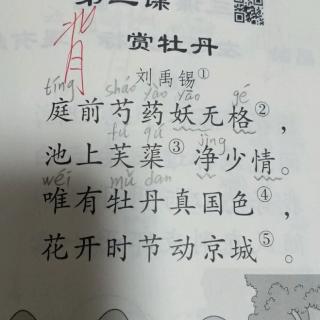 背
赏牡丹
刘禹锡①
tíng sháo yào yāo gé
庭前芍药妖无格②，
fú qú jìng
池上芙蕖③净少情。
wéi mǔ dan
唯有牡丹真国色④，
花开时节动京城⑤。